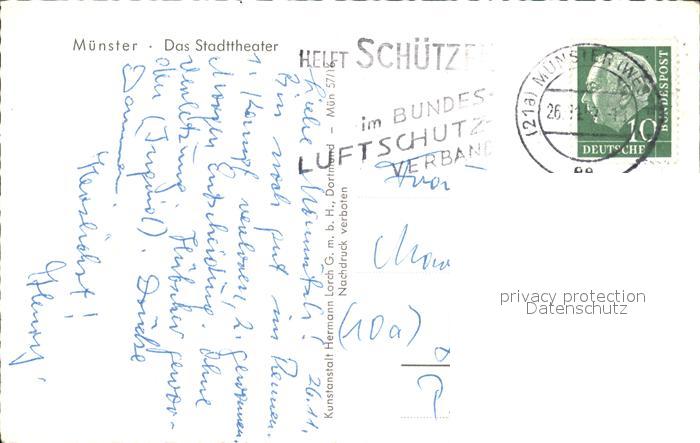 Münster · Das Stadttheater
HELFT SCHÜTZE
im BUNDES-
LUFTSCHUTZ-
VERBAND
(21a) MÜNSTER (WES
26.11.
DEUTSCHE
BUNDESPOST
10
Kunstanstalt Hermann Lorch G. m. b. H., Dortmund — Mün 57/16
Nachdruck verboten
Liebe 26.11.
Bin noch gut im Rennen.
1. Kampf verloren, 2. gewonnen.
Morgen Entscheidung. Ohne
Verletzung. Hübscher gewor-
den (Jugend). Drücke
Daumen
Herzlichst!
Frau
(10a)
privacy protection
Datenschutz